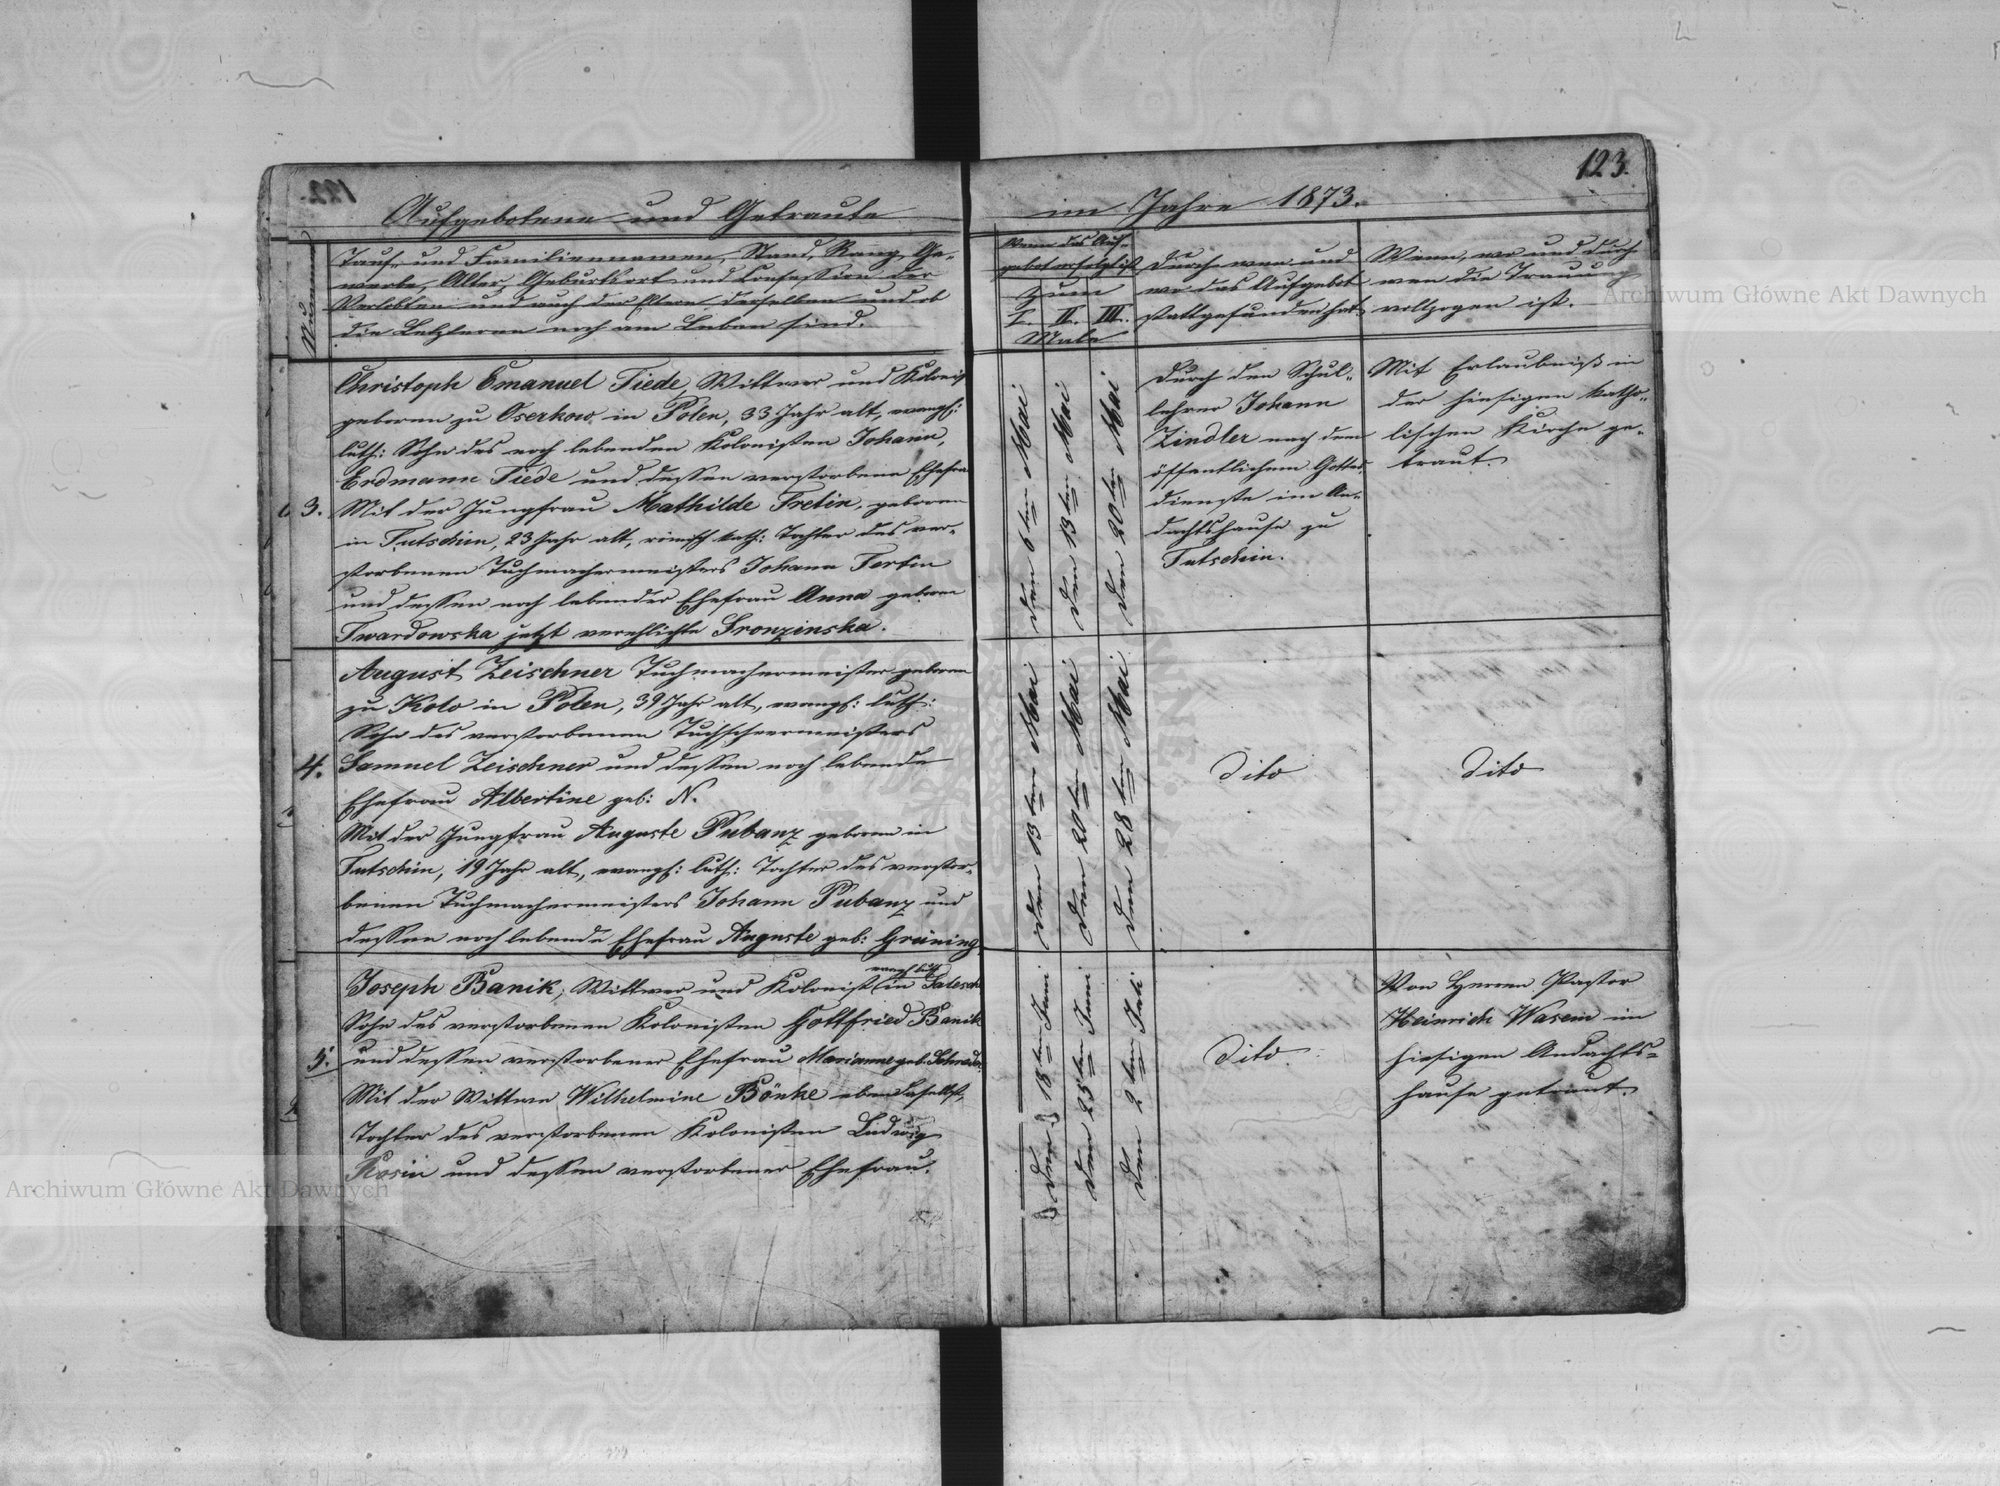 122.
Aufgebotene und Getraute
Nummer
Tauf- und Familiennamen, Stand, Rang, Ge-
werbe, Alter, Geburtsort und Confession der
Verlobten und auch der Eltern derselben und ob
die Letzteren noch am Leben sind.
3.
Christoph Emanuel Tiede, Wittwer und Kolonist
geboren zu Oserkow in Polen, 33 Jahr alt, evangl:
luth: Sohn des noch lebenden Kolonisten Johann,
Erdmann Tiede und dessen verstorbene Ehefrau
Mit der Jungfrau Mathilde Fretin, geboren
in Tutschin, 23 Jahr alt, römisch kath: Tochter des ver-
storbenen Tuchmachermeisters Johann Fertin
und dessen noch lebender Ehefrau Anna geboren
Twardowska jetzt verehlichte Sronzinska.
4.
August Zeischner Tuchmachermeister geboren
zu Kolo in Polen, 39 Jahr alt, evangl: luth:
Sohn des verstorbenen Tuchscheermeisters
Samuel Zeischner und dessen noch lebende
Ehefrau Albertine geb: N.
Mit der Jungfrau Auguste Pubanz geboren in
Tutschin, 19 Jahr alt, evangl: luth: Tochter des verstor-
benen Tuchmachermeisters Johann Pubanz und
dessen noch lebende Ehefrau Auguste geb: Grüning
5.
evangl luth
Joseph Banik, Wittwer und Kolonist in
Sohn des verstorbenen Kolonisten Gottfried Banik
und dessen verstorbener Ehefrau Marianne geb.
Mit der Wittwe Wilhelmine Bönke ebendaselbst,
Tochter des verstorbenen Kolonisten Ludwig
Rosin und dessen verstorbener Ehefrau.
123.
im Jahre 1873.
Wenn das Auf-
gebot erfolgt ist
zum
I. II. III.
Male
Durch wen und
wo das Aufgebot
stattgefunden hat
Wenn, wo und durch
wen die Trauung
vollzogen ist.
den 6ten Mai
den 13ten Mai
den 20ten Mai
Durch den Schul-
lehrer Johann
Zindler nach dem
öffentlichem Gottes
dienste im An-
dachtshause zu
Tutschin.
Mit Erlaubniß in
der hiesigen katho-
lischen Kirche ge-
traut.
den 13ten Mai
den 20ten Mai
den 28ten Mai
Dito
Dito
den 18ten Juni
den 25ten Juni
den 2ten Juli
Dito.
Von Herren Pastor
Heinrich Wasem im
hiesigen Andachts-
hause getraut.
Archiwum Główne Akt Dawnych
Archiwum Główne Akt Dawnych